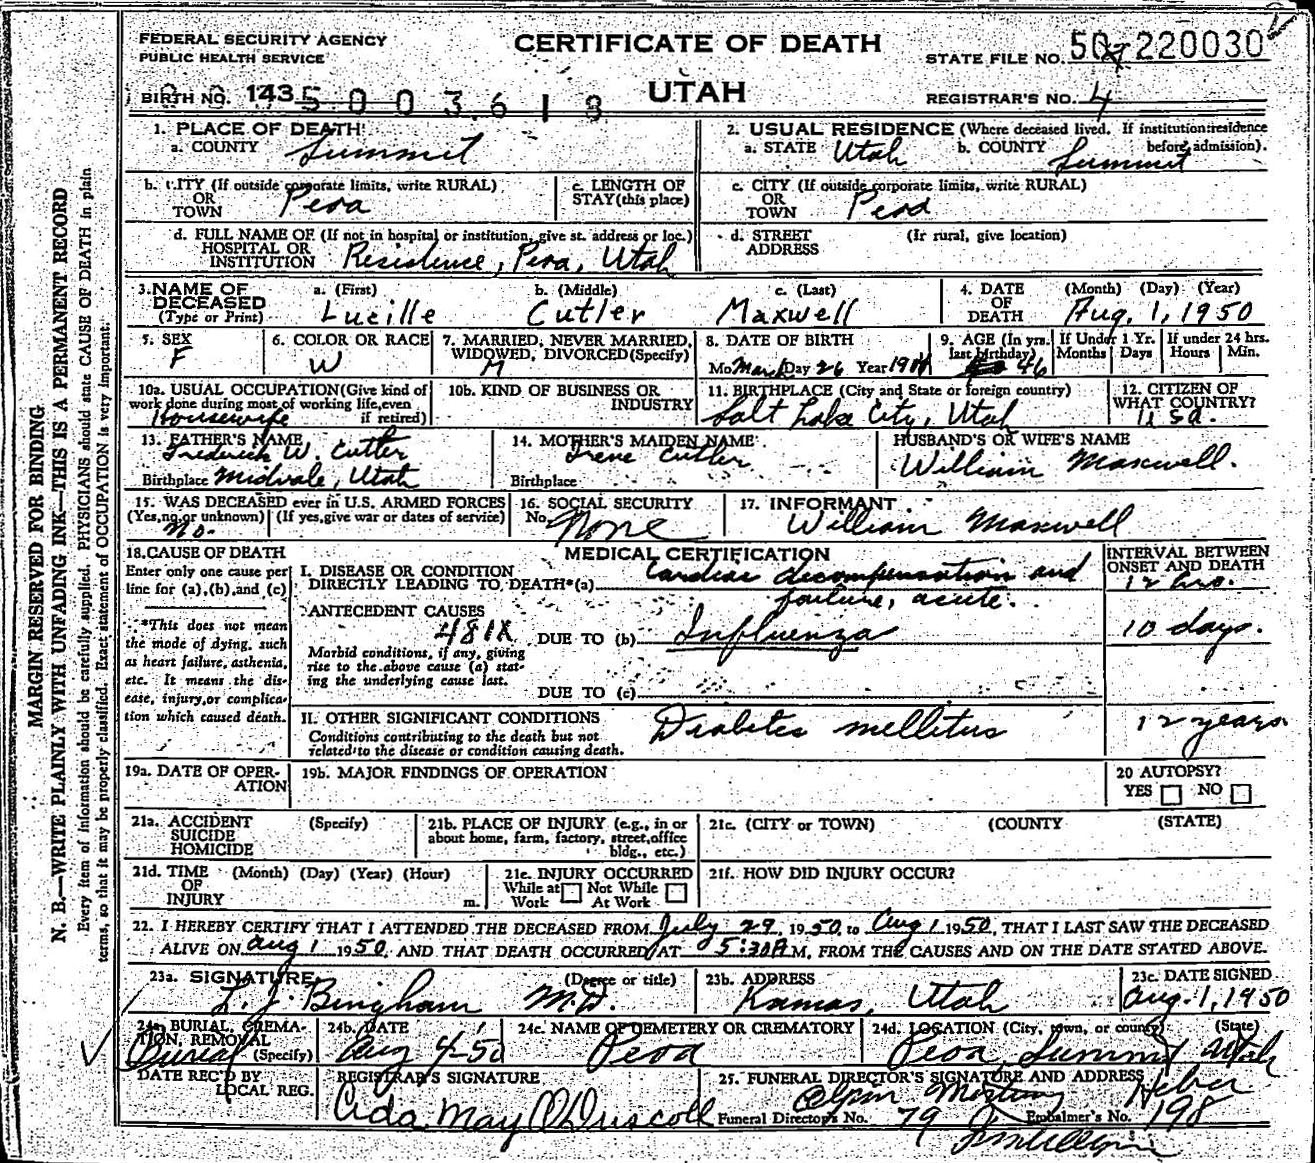 FEDERAL SECURITY AGENCY
PUBLIC HEALTH SERVICE
CERTIFICATE OF DEATH
STATE FILE NO. 220030
BIRTH NO. 143
UTAH
REGISTRAR'S NO. 4
1. PLACE OF DEATH
a. COUNTY Summit
2. USUAL RESIDENCE (Where deceased lived. If institution: residence before admission).
a. STATE Utah b. COUNTY Summit
b. CITY (If outside corporate limits, write RURAL) OR TOWN Peoa
c. LENGTH OF STAY (this place)
c. CITY (If outside corporate limits, write RURAL) OR TOWN Peoa
d. FULL NAME OF (If not in hospital or institution, give st. address or loc.) HOSPITAL OR INSTITUTION Residence, Peoa, Utah
d. STREET ADDRESS (If rural, give location)
3. NAME OF DECEASED (Type or Print) a. (First) Lucille b. (Middle) Cutler c. (Last) Maxwell
4. DATE OF DEATH (Month) (Day) (Year) Aug, 1, 1950
5. SEX F
6. COLOR OR RACE W
7. MARRIED, NEVER MARRIED, WIDOWED, DIVORCED (Specify) M
8. DATE OF BIRTH Mo March Day 26 Year
9. AGE (In yrs. last birthday) 46
If Under 1 Yr. Months Days
If under 24 hrs. Hours Min.
10a. USUAL OCCUPATION (Give kind of work done during most of working life, even if retired) Housewife
10b. KIND OF BUSINESS OR INDUSTRY
11. BIRTHPLACE (City and State or foreign country) Salt Lake City, Utah
12. CITIZEN OF WHAT COUNTRY? U Sa.
13. FATHER'S NAME Frederick W. Cutler
Birthplace Midvale, Utah
14. MOTHER'S MAIDEN NAME Irene Cutler
Birthplace
HUSBAND'S OR WIFE'S NAME William Maxwell.
15. WAS DECEASED ever in U.S. ARMED FORCES (Yes, no or unknown) (If yes, give war or dates of service) No.
16. SOCIAL SECURITY No. None
17. INFORMANT William Maxwell
18. CAUSE OF DEATH
Enter only one cause per line for (a), (b), and (c)
*This does not mean the mode of dying, such as heart failure, asthenia, etc. It means the disease, injury, or complication which caused death.
MEDICAL CERTIFICATION
INTERVAL BETWEEN ONSET AND DEATH
I. DISEASE OR CONDITION DIRECTLY LEADING TO DEATH*(a) Cardiac decompensation and failure, acute. 12 hrs.
ANTECEDENT CAUSES 481X
Morbid conditions, if any, giving rise to the above cause (a) stating the underlying cause last.
DUE TO (b) Influenza 10 days.
DUE TO (c)
II. OTHER SIGNIFICANT CONDITIONS
Conditions contributing to the death but not related to the disease or condition causing death. Diabetes mellitus 12 years
19a. DATE OF OPERATION
19b. MAJOR FINDINGS OF OPERATION
20 AUTOPSY? YES NO
21a. ACCIDENT SUICIDE HOMICIDE (Specify)
21b. PLACE OF INJURY (e.g., in or about home, farm, factory, street, office bldg., etc.)
21c. (CITY or TOWN) (COUNTY (STATE)
21d. TIME OF INJURY (Month) (Day) (Year) (Hour) m.
21e. INJURY OCCURRED While at Work Not While At Work
21f. HOW DID INJURY OCCUR?
22. I HEREBY CERTIFY THAT I ATTENDED THE DECEASED FROM July 29, 1950, to Aug 1 1950, THAT I LAST SAW THE DECEASED
ALIVE ON Aug 1 1950, AND THAT DEATH OCCURRED AT 5:30 A M, FROM THE CAUSES AND ON THE DATE STATED ABOVE.
23a. SIGNATURE (Degree or title) Bingham M.D.
23b. ADDRESS Kamas, Utah
23c. DATE SIGNED Aug. 1, 1950
24a. BURIAL, CREMATION, REMOVAL (Specify) Burial
24b. DATE Aug 4-50
24c. NAME OF CEMETERY OR CREMATORY Peoa
24d. LOCATION (City, town, or county) (State) Peoa, Summit Utah
DATE REC'D BY LOCAL REG.
REGISTRAR'S SIGNATURE Ada May O'Driscoll
25. FUNERAL DIRECTOR'S SIGNATURE AND ADDRESS Heber
Funeral Director's No. 79 Embalmer's No. 198
MARGIN RESERVED FOR BINDING
N. B.—WRITE PLAINLY WITH UNFADING INK—THIS IS A PERMANENT RECORD
Every item of information should be carefully supplied. PHYSICIANS should state CAUSE OF DEATH in plain
terms, so that it may be properly classified. Exact statement of OCCUPATION is very important.